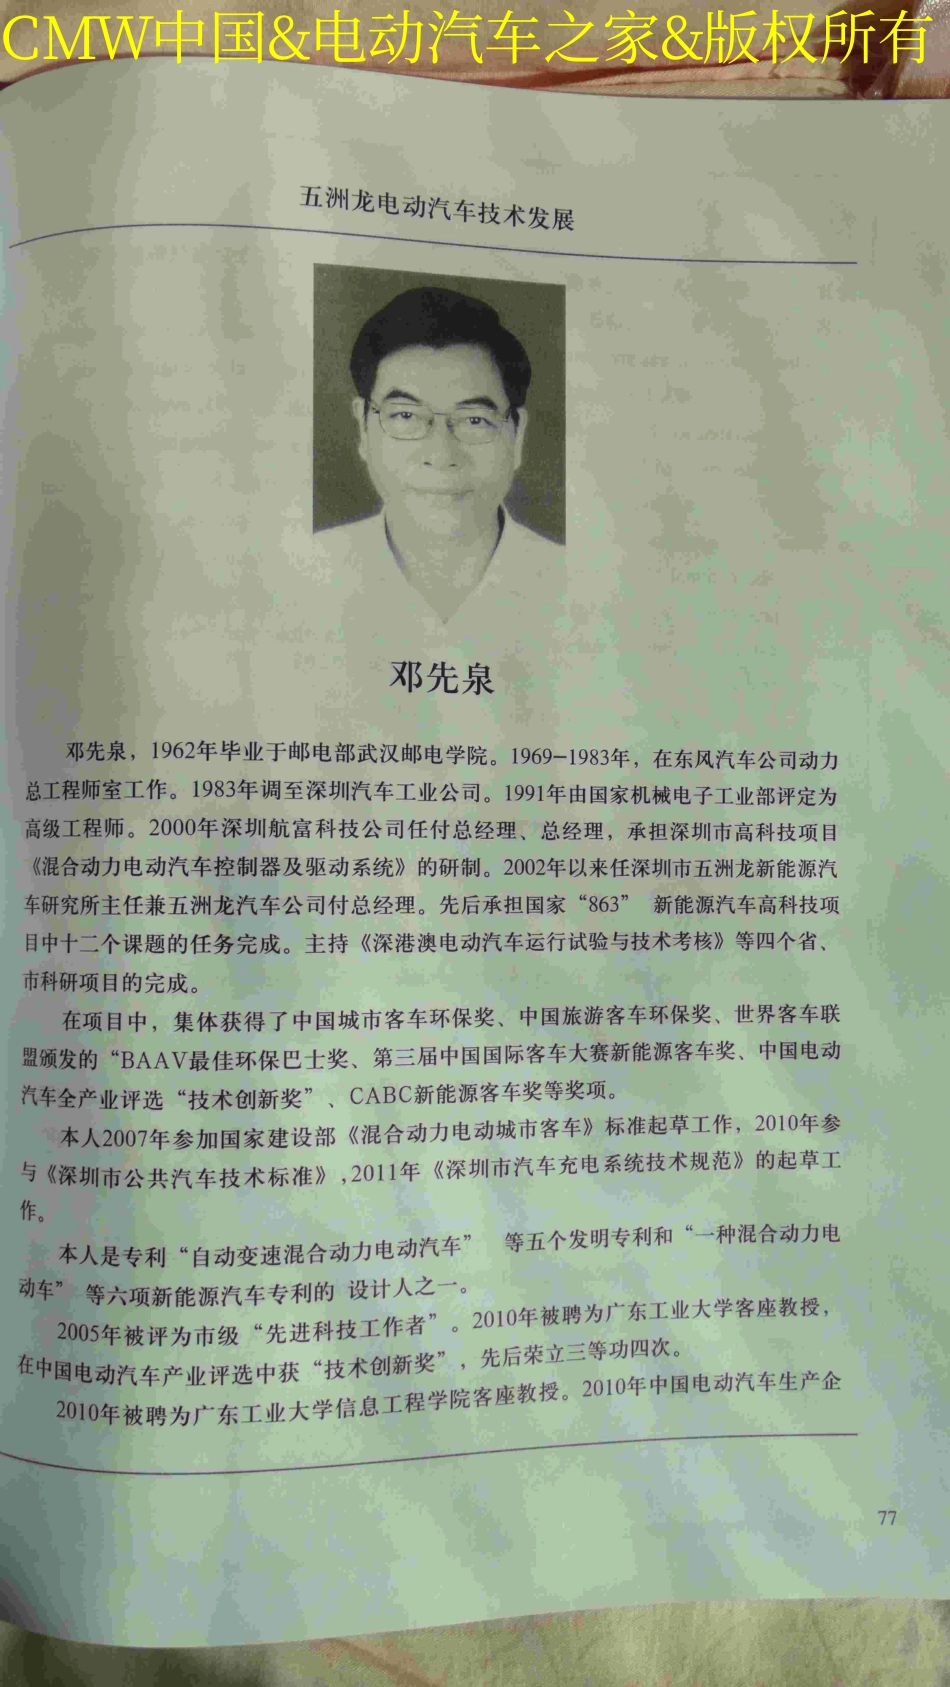 CMW中国&电动汽车之家&版权所有
五洲龙电动汽车技术发展
邓先泉
邓先泉，1962年毕业于邮电部武汉邮电学院。1969-1983年，在东风汽车公司动力
总工程师室工作。1983年调至深圳汽车工业公司。1991年由国家机械电子工业部评定为
高级工程师。2000年深圳航富科技公司任付总经理、总经理，承担深圳市高科技项目
《混合动力电动汽车控制器及驱动系统》的研制。2002年以来任深圳市五洲龙新能源汽
车研究所主任兼五洲龙汽车公司付总经理。先后承担国家“863” 新能源汽车高科技项
目中十二个课题的任务完成。主持《深港澳电动汽车运行试验与技术考核》等四个省、
市科研项目的完成。
在项目中，集体获得了中国城市客车环保奖、中国旅游客车环保奖、世界客车联
盟颁发的“BAAV最佳环保巴士奖、第三届中国国际客车大赛新能源客车奖、中国电动
汽车全产业评选“技术创新奖”、CABC新能源客车奖等奖项。
本人2007年参加国家建设部《混合动力电动城市客车》标准起草工作，2010年参
与《深圳市公共汽车技术标准》,2011年《深圳市汽车充电系统技术规范》的起草工
作。
本人是专利“自动变速混合动力电动汽车” 等五个发明专利和“一种混合动力电
动车” 等六项新能源汽车专利的 设计人之一。
2005年被评为市级“先进科技工作者”。2010年被聘为广东工业大学客座教授，
在中国电动汽车产业评选中获“技术创新奖”，先后荣立三等功四次。
2010年被聘为广东工业大学信息工程学院客座教授。2010年中国电动汽车生产企
77